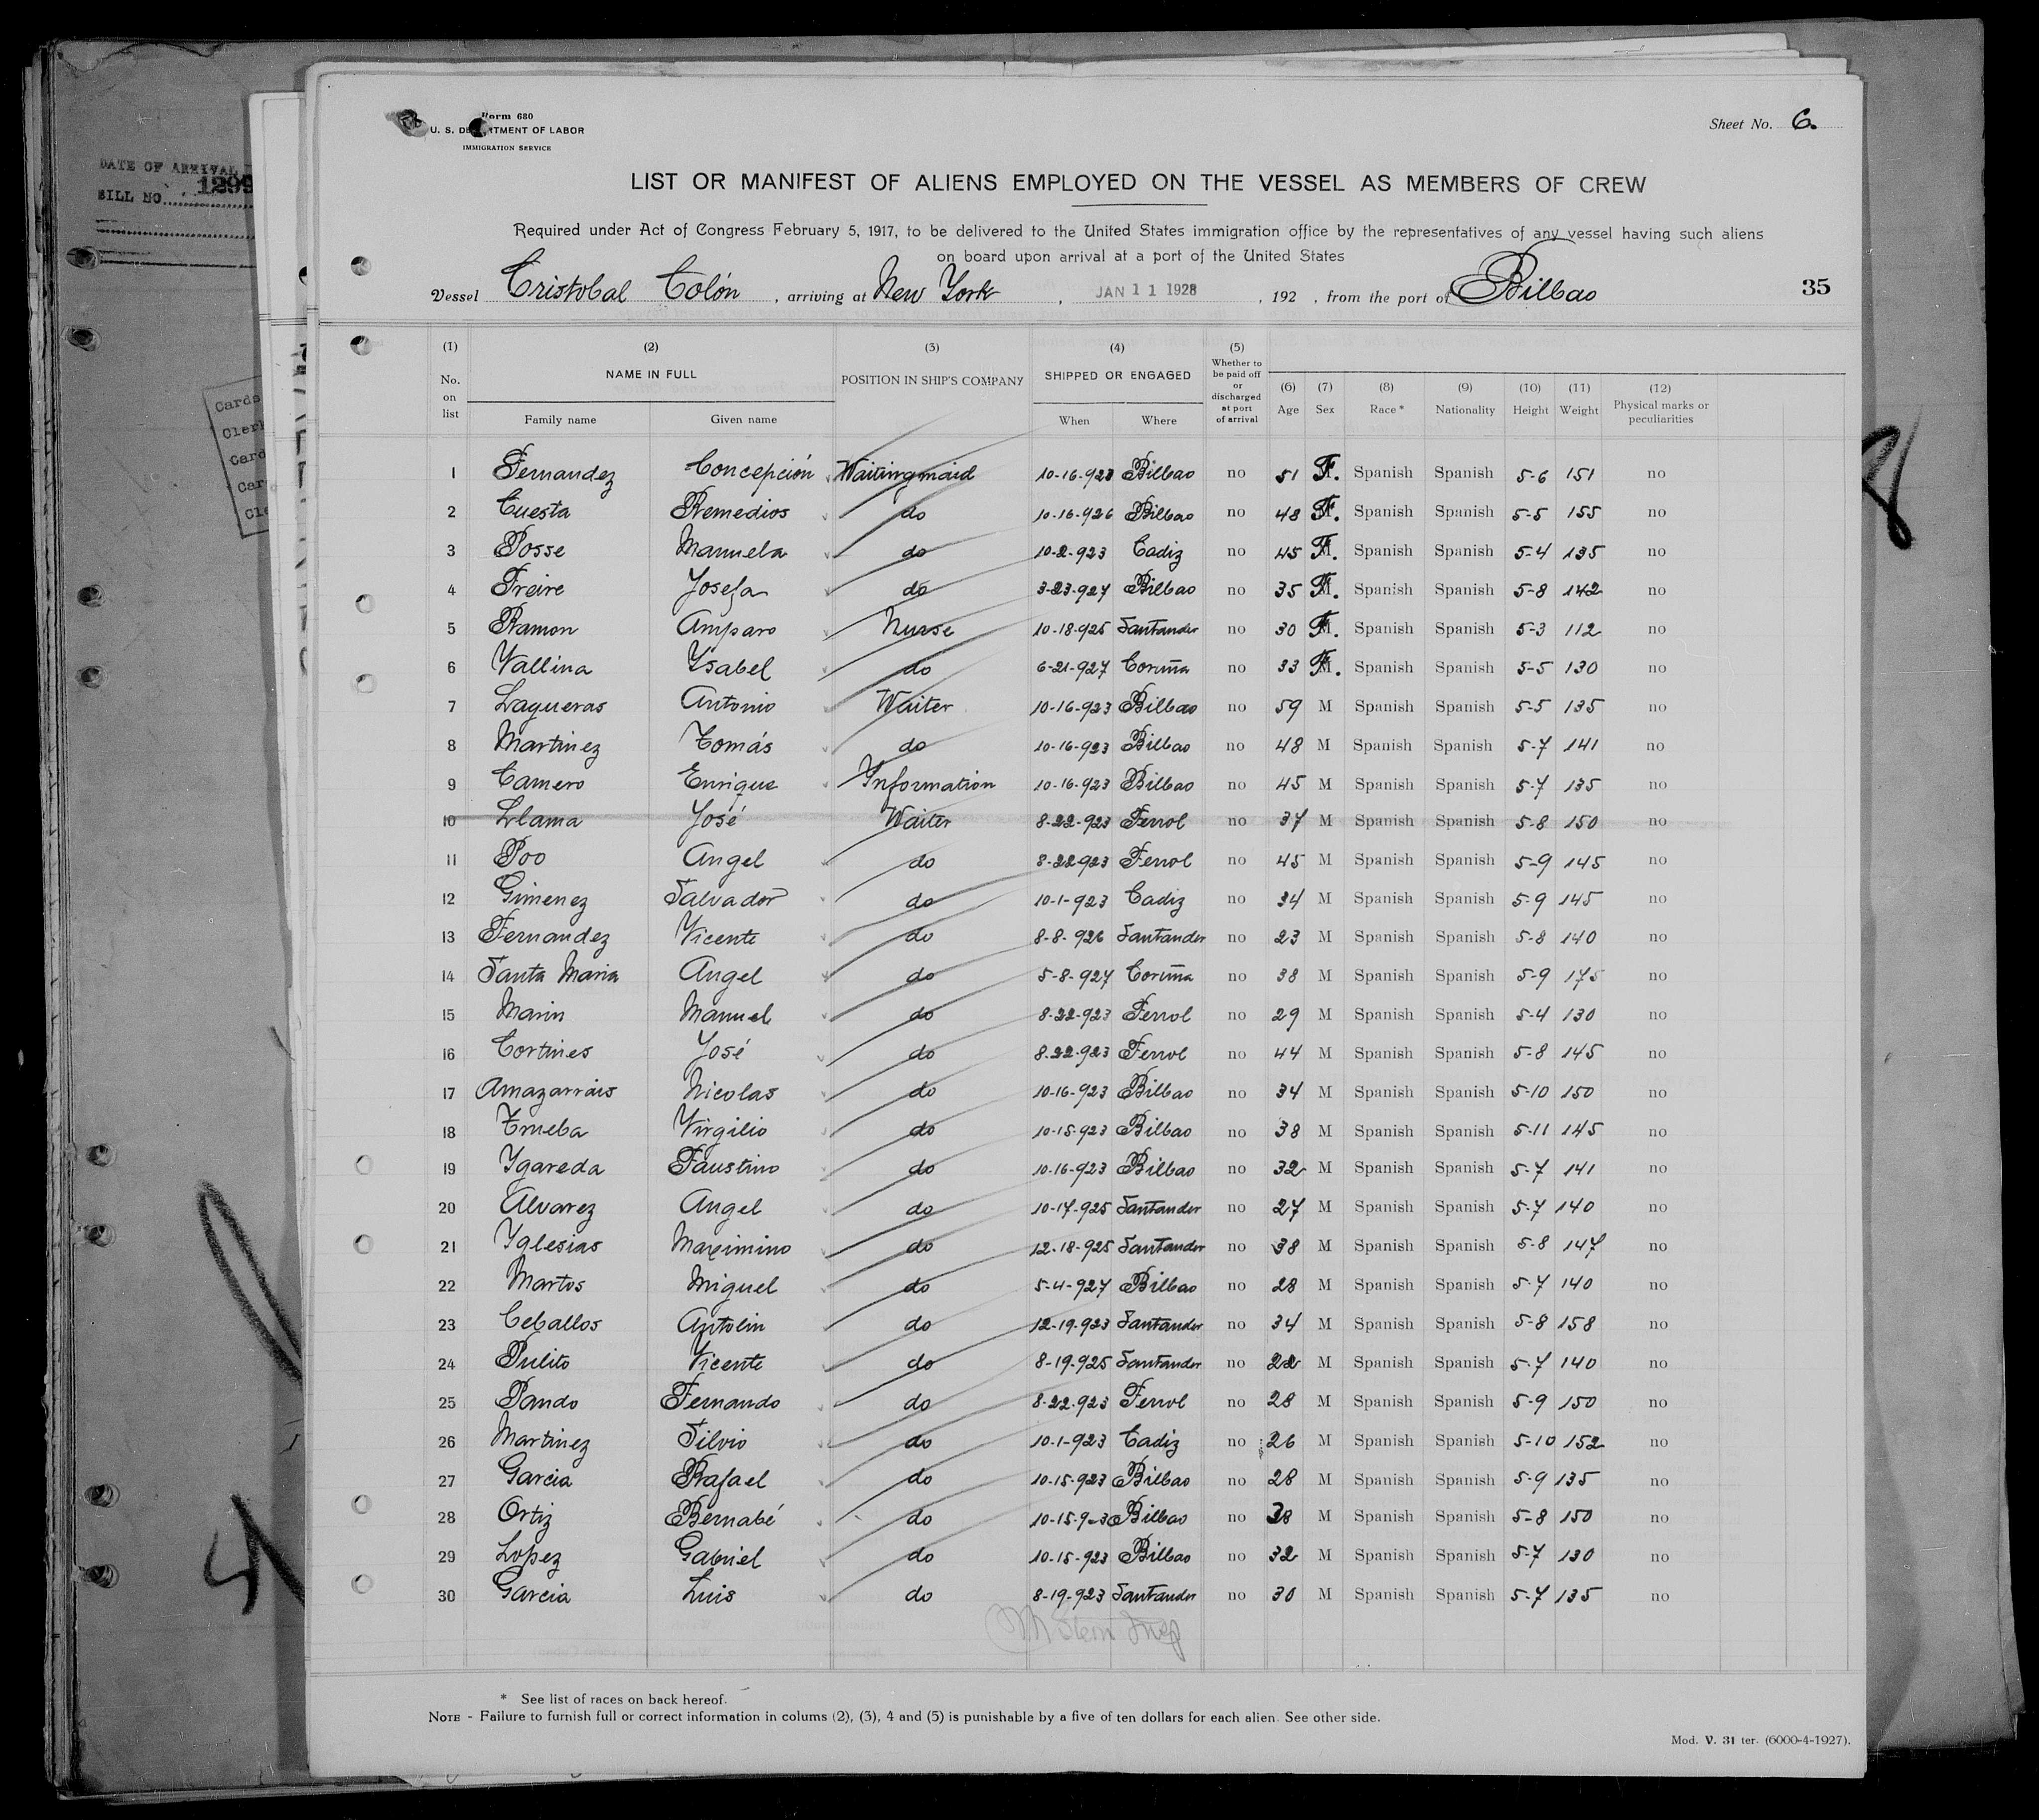 DATE OF ARRIVAL
BILL NO. 1299
Cards
Clerk
Card
Car
Cle
Form 680
U. S. DEPARTMENT OF LABOR
IMMIGRATION SERVICE
Sheet No. 6.
LIST OR MANIFEST OF ALIENS EMPLOYED ON THE VESSEL AS MEMBERS OF CREW
Required under Act of Congress February 5, 1917, to be delivered to the United States immigration office by the representatives of any vessel having such aliens
on board upon arrival at a port of the United States
Vessel Cristobal Colón, arriving at New York, JAN 11 1928, 192 , from the port of Bilbao 35
(1) (2) (3) (4) (5)
No. on list NAME IN FULL POSITION IN SHIP'S COMPANY SHIPPED OR ENGAGED Whether to be paid off or discharged at port of arrival (6) Age (7) Sex (8) Race * (9) Nationality (10) Height (11) Weight (12) Physical marks or peculiarities
Family name Given name When Where
1 Fernandez Concepción Waitingmaid 10-16-923 Bilbao no 51 F. Spanish Spanish 5-6 151 no
2 Cuesta Remedios do 10-16-926 Bilbao no 48 F. Spanish Spanish 5-5 155 no
3 Posse Manuela do 10-2-923 Cadiz no 45 F. Spanish Spanish 5-4 135 no
4 Freire Josefa do 3-23-927 Bilbao no 35 F. Spanish Spanish 5-8 142 no
5 Ramon Amparo Nurse 10-18-925 Santander no 30 F. Spanish Spanish 5-3 112 no
6 Vallina Ysabel do 6-21-927 Coruña no 33 F. Spanish Spanish 5-5 130 no
7 Lagueras Antonio Waiter 10-16-923 Bilbao no 59 M Spanish Spanish 5-5 135 no
8 Martinez Tomás do 10-16-923 Bilbao no 48 M Spanish Spanish 5-7 141 no
9 Camero Enrique Information 10-16-923 Bilbao no 45 M Spanish Spanish 5-7 135 no
10 Llama José Waiter 8-22-923 Ferrol no 37 M Spanish Spanish 5-8 150 no
11 Poo Angel do 8-22923 Ferrol no 45 M Spanish Spanish 5-9 145 no
12 Gimenez Salvador do 10-1-923 Cadiz no 34 M Spanish Spanish 5-9 145 no
13 Fernandez Vicente do 8-8-926 Santander no 23 M Spanish Spanish 5-8 140 no
14 Santa Maria Angel do 5-8-927 Coruña no 38 M Spanish Spanish 5-9 175 no
15 Marin Manuel do 8-22-923 Ferrol no 29 M Spanish Spanish 5-4 130 no
16 Cortines José do 8-22-923 Ferrol no 44 M Spanish Spanish 5-8 145 no
17 Amazarrais Nicolas do 10-16-923 Bilbao no 34 M Spanish Spanish 5-10 150 no
18 Trueba Virgilio do 10-15-923 Bilbao no 38 M Spanish Spanish 5-11 145 no
19 Ygareda Faustino do 10-16-923 Bilbao no 32 M Spanish Spanish 5-7 141 no
20 Alvarez Angel do 10-17-925 Santander no 27 M Spanish Spanish 5-7 140 no
21 Yglesias Maximino do 12-18-925 Santander no 38 M Spanish Spanish 5-8 147 no
22 Martos Miguel do 5-4-927 Bilbao no 28 M Spanish Spanish 5-7 140 no
23 Ceballos Antolin do 12-19-923 Santander no 34 M Spanish Spanish 5-8 158 no
24 Pulito Vicente do 8-19-925 Santander no 22 M Spanish Spanish 5-7 140 no
25 Pando Fernando do 8-22-923 Ferrol no 28 M Spanish Spanish 5-9 150 no
26 Martinez Silvio do 10-1-923 Cadiz no 26 M Spanish Spanish 5-10 152 no
27 Garcia Rafael do 10-15-923 Bilbao no 28 M Spanish Spanish 5-9 135 no
28 Ortiz Bernabé do 10-15-923 Bilbao no 38 M Spanish Spanish 5-8 150 no
29 Lopez Gabriel do 10-15-923 Bilbao no 32 M Spanish Spanish 5-7 130 no
30 Garcia Luis do 8-19-923 Santander no 30 M Spanish Spanish 5-7 135 no
M Stern Insp
* See list of races on back hereof.
NOTE - Failure to furnish full or correct information in colums (2), (3), 4 and (5) is punishable by a five of ten dollars for each alien. See other side.
Mod. V. 31 ter. (6000-4-1927).